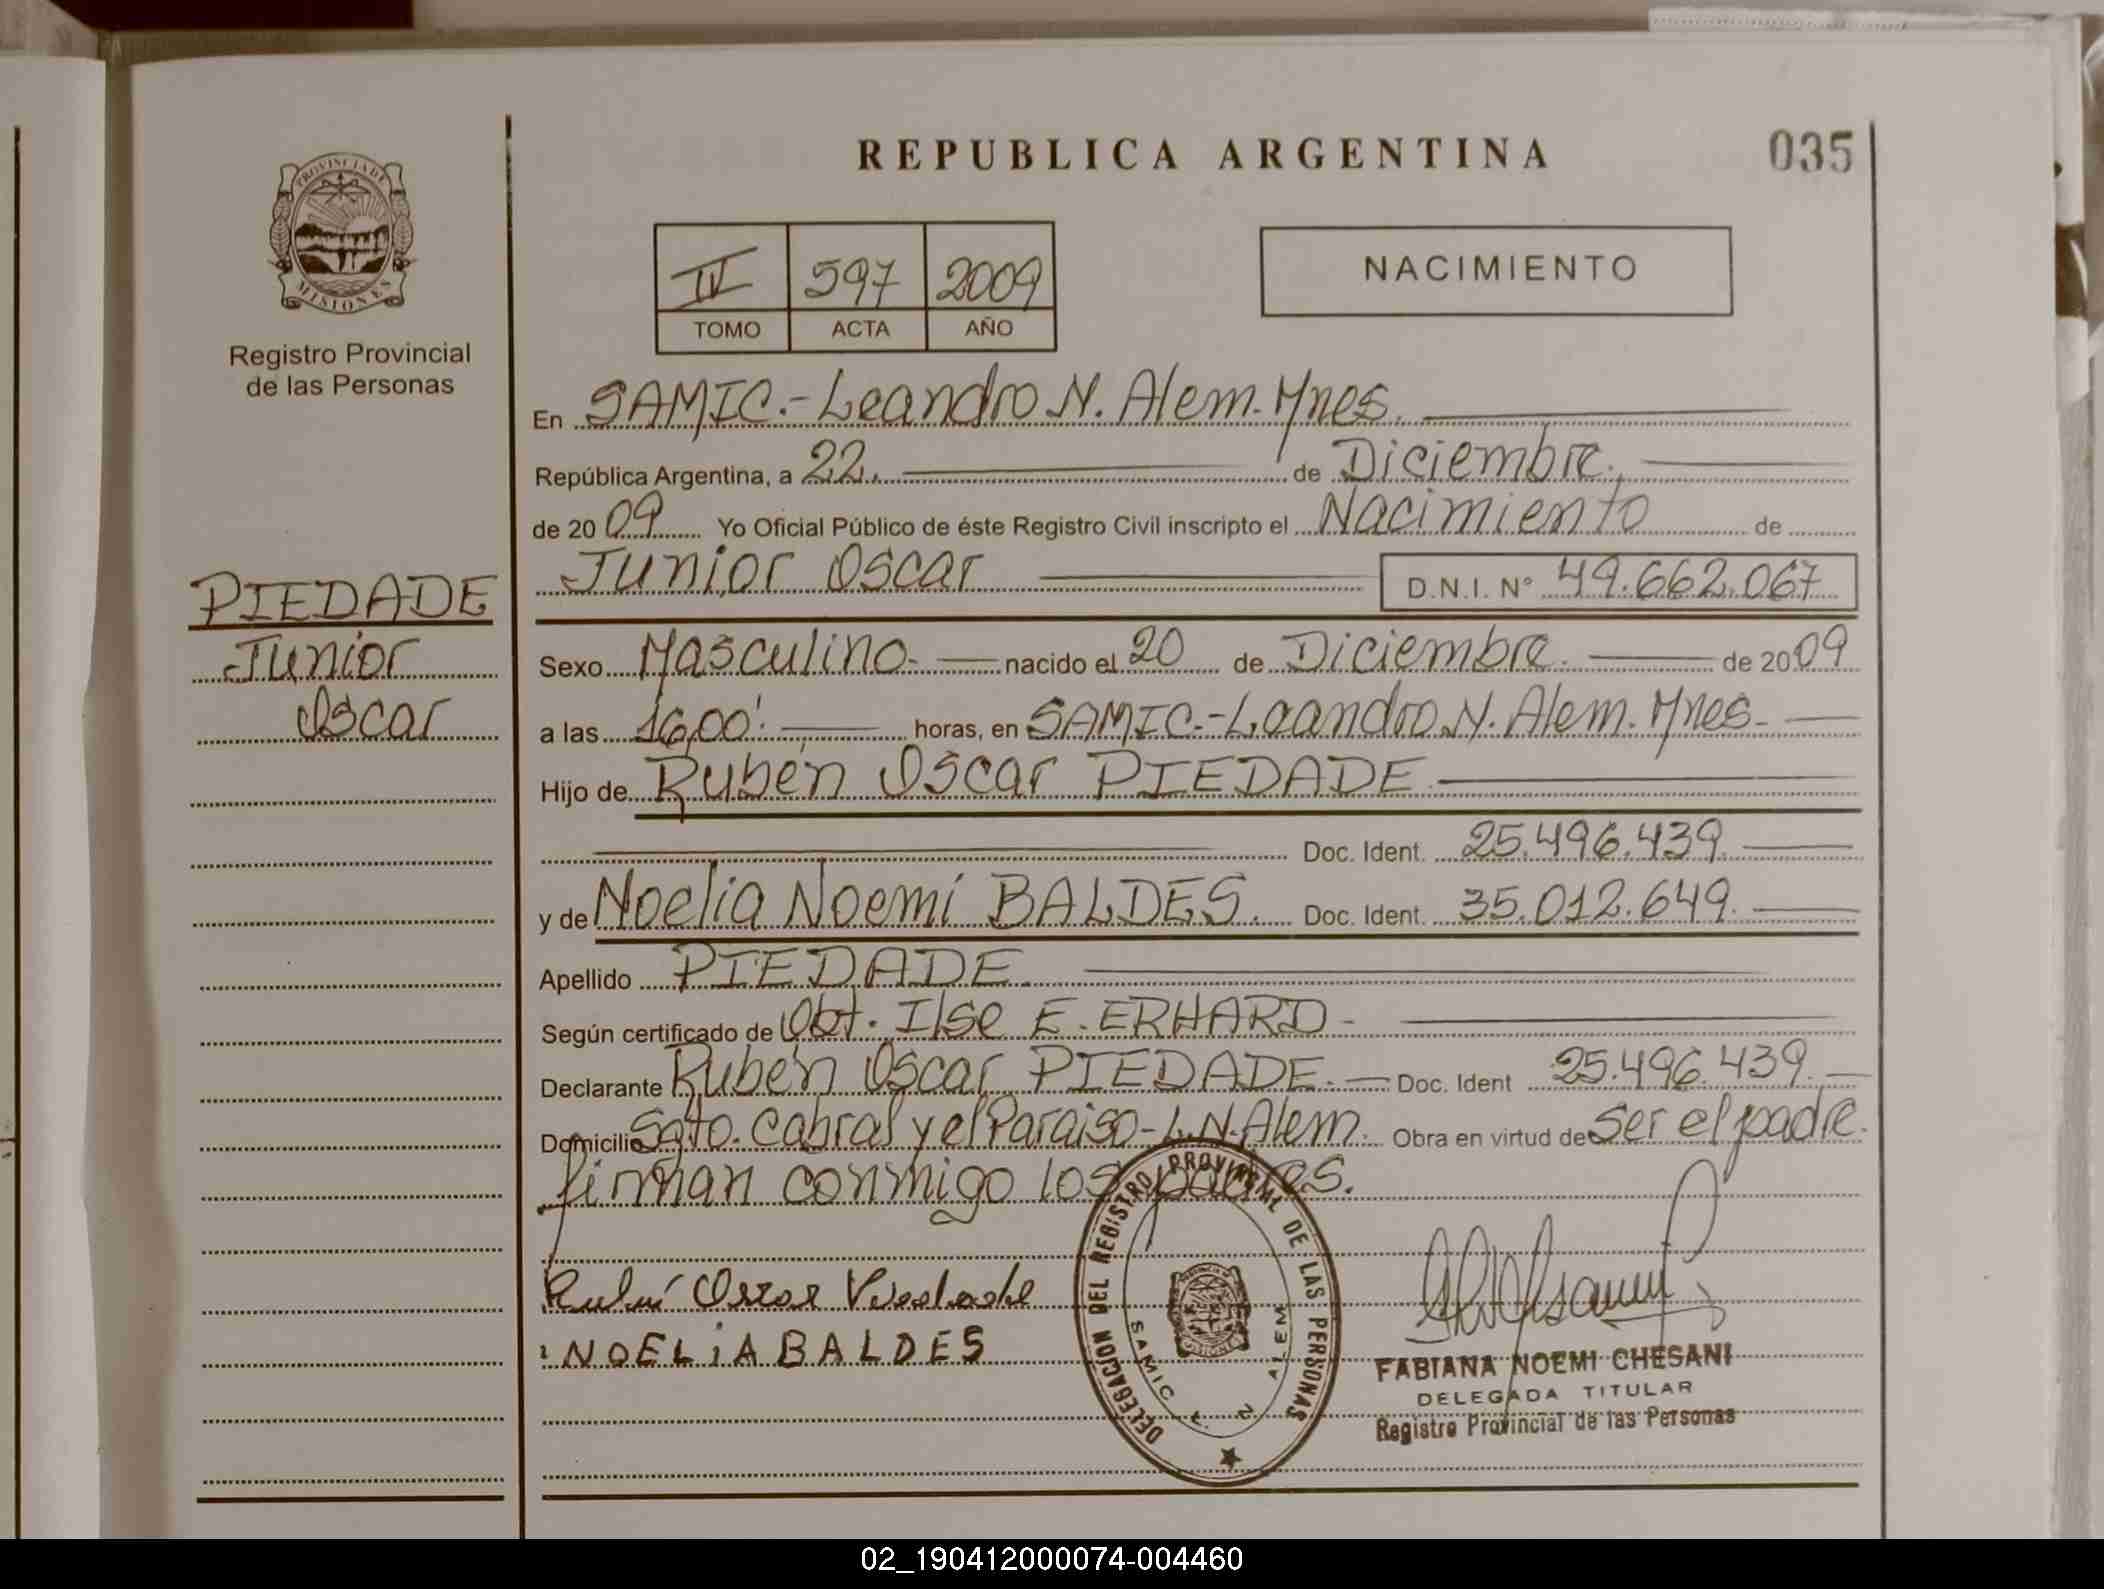 REPUBLICA ARGENTINA
035
PROVINCIA DE MISIONES
Registro Provincial
de las Personas
IV 597 2009
TOMO ACTA AÑO
NACIMIENTO
En SAMIC.- Leandro N. Alem. Mnes.
República Argentina, a 22. de Diciembre.
de 20 09 Yo Oficial Público de éste Registro Civil inscripto el Nacimiento de
Junior Oscar D.N.I. N° 49.662.067
PIEDADE
Junior
Oscar
Sexo Masculino.- nacido el 20 de Diciembre. de 20 09
a las 16,00'. horas, en SAMIC.- Leandro N. Alem. Mnes.
Hijo de Rubén Oscar PIEDADE.
Doc. Ident. 25.496.439.
y de Noelia Noemí BALDES. Doc. Ident. 35.012.649.
Apellido PIEDADE.
Según certificado de Obt. Ilse E. ERHARD.
Declarante Rubén Oscar PIEDADE. Doc. Ident 25.496.439.
Domicilio Sgto. Cabral y el Paraiso - L. N. Alem. Obra en virtud de ser el padre.
firman conmigo los padres.
Rubén Oscar Piedade
NOELiA BALDES
DELEGACION DEL REGISTRO PROVINCIAL DE LAS PERSONAS
SAMIC L. N. ALEM
FABIANA NOEMI CHESANI
DELEGADA TITULAR
Registro Provincial de las Personas
02_190412000074-004460